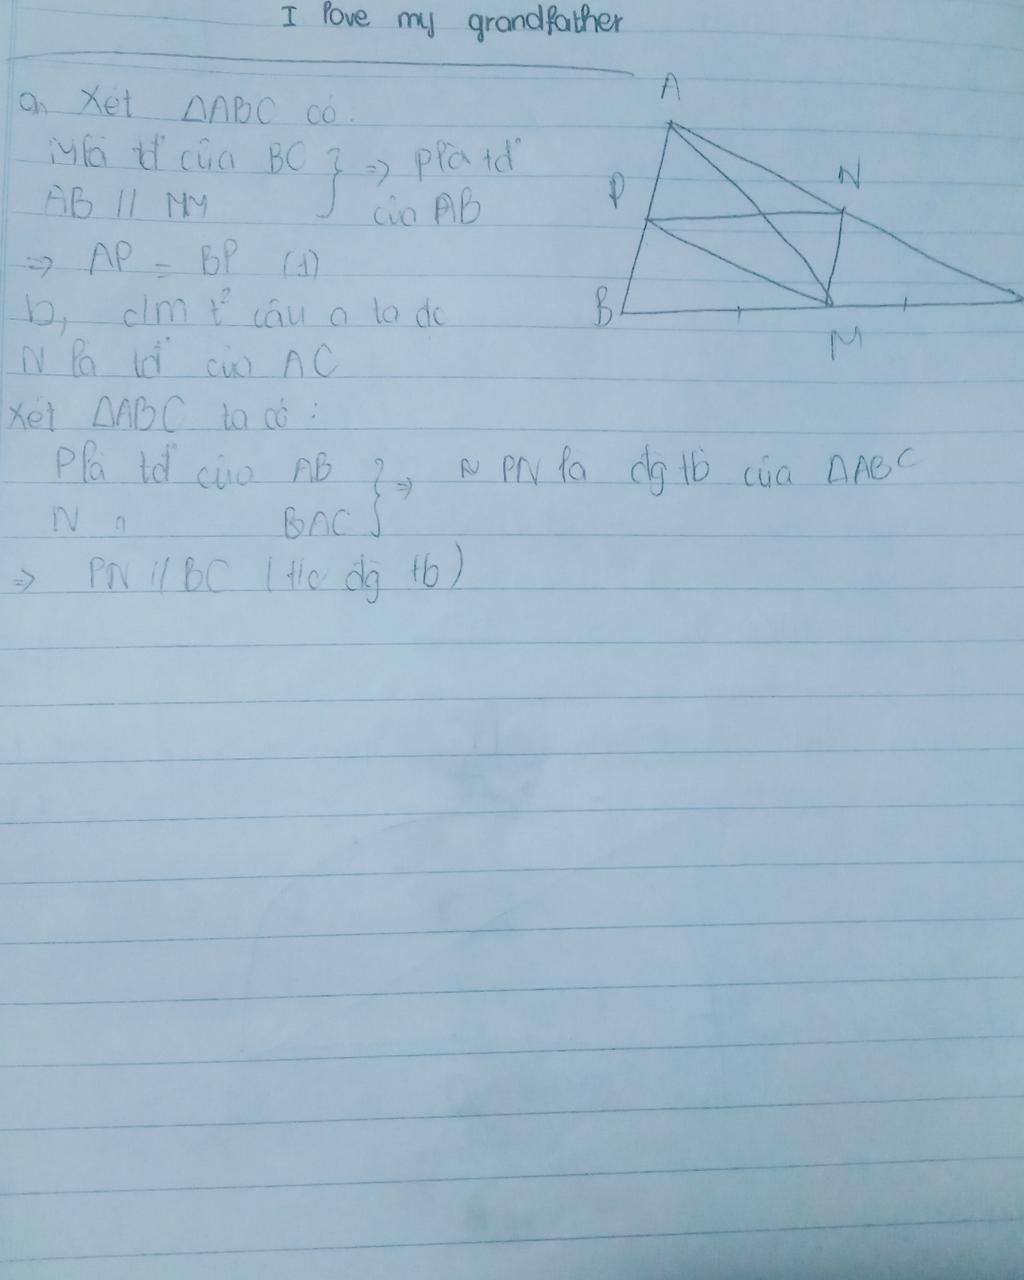 I love my grandfather
a, Xét ΔABC có.
M là tđ của BC } => P là tđ
AB // MM của AB
=> AP = BP (1)
b, c/m t² câu a ta dc
N là tđ của AC
Xét ΔABC ta có :
P là tđ của AB } => N PN là đg tb của ΔABC
N " BAC
=> PN // BC ( t/c đg tb )
A
P
N
B
M